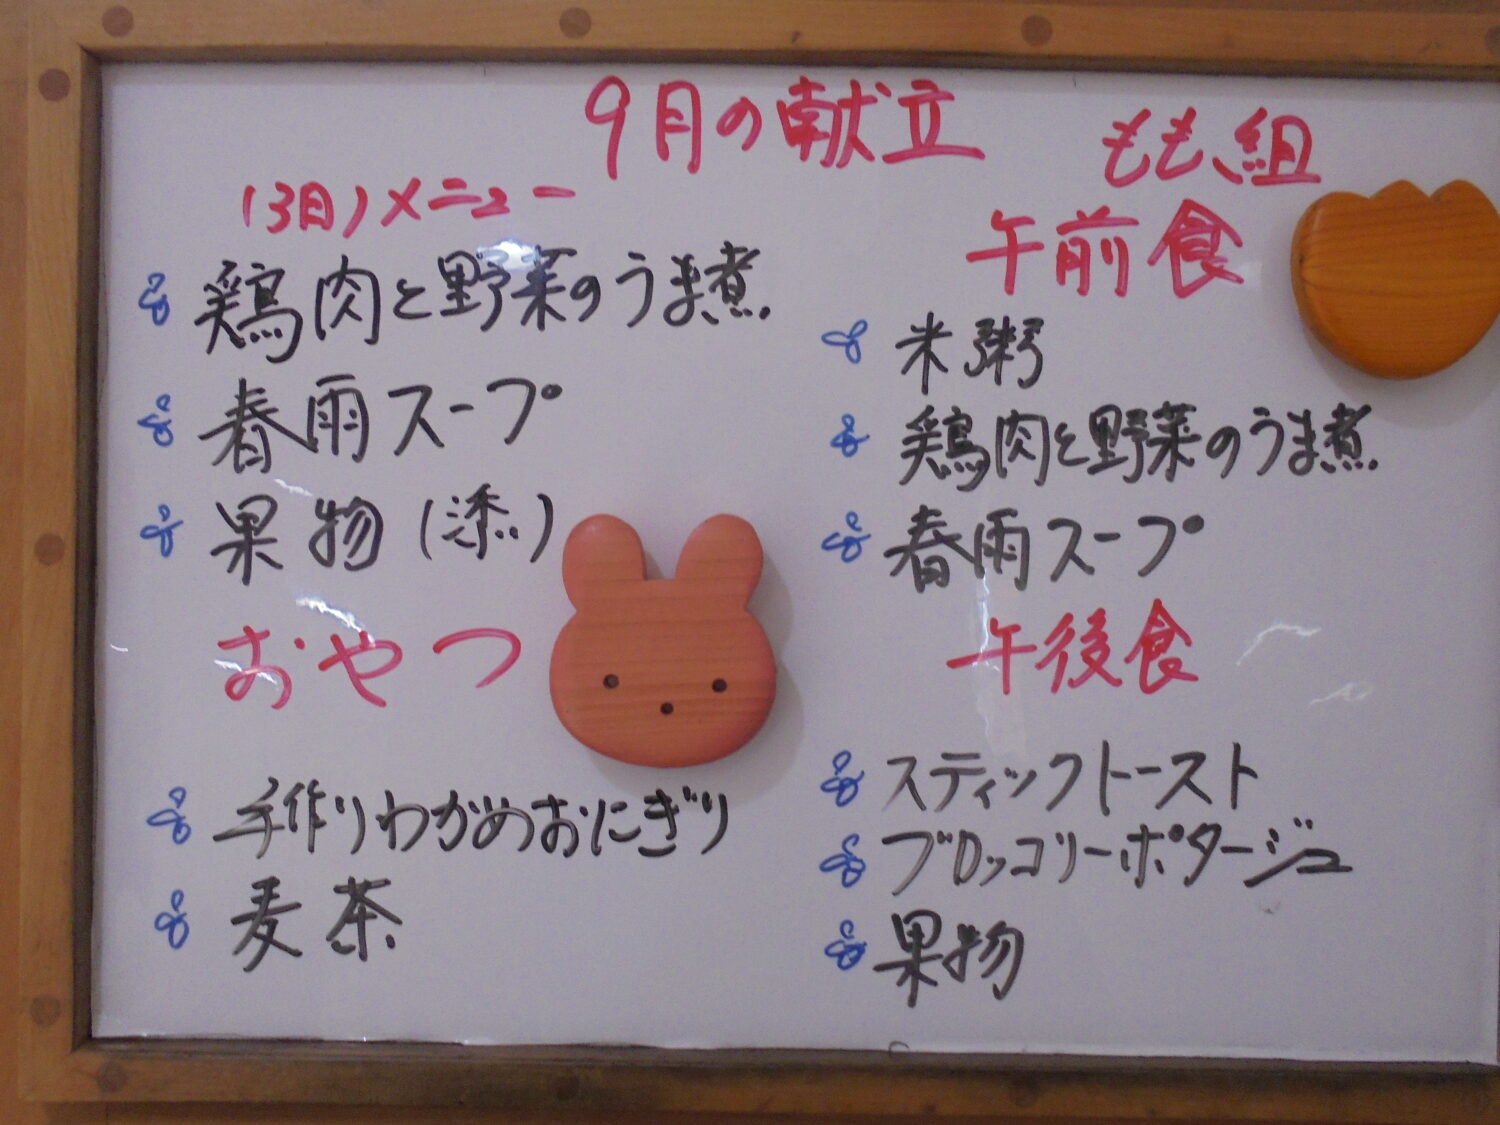 9月の献立
(3日)メニュー
鶏肉と野菜のうま煮
春雨スープ
果物(添)
おやつ
手作りわかめおにぎり
麦茶
もも組
午前食
米粥
鶏肉と野菜のうま煮
春雨スープ
午後食
スティックトースト
ブロッコリーポタージュ
果物